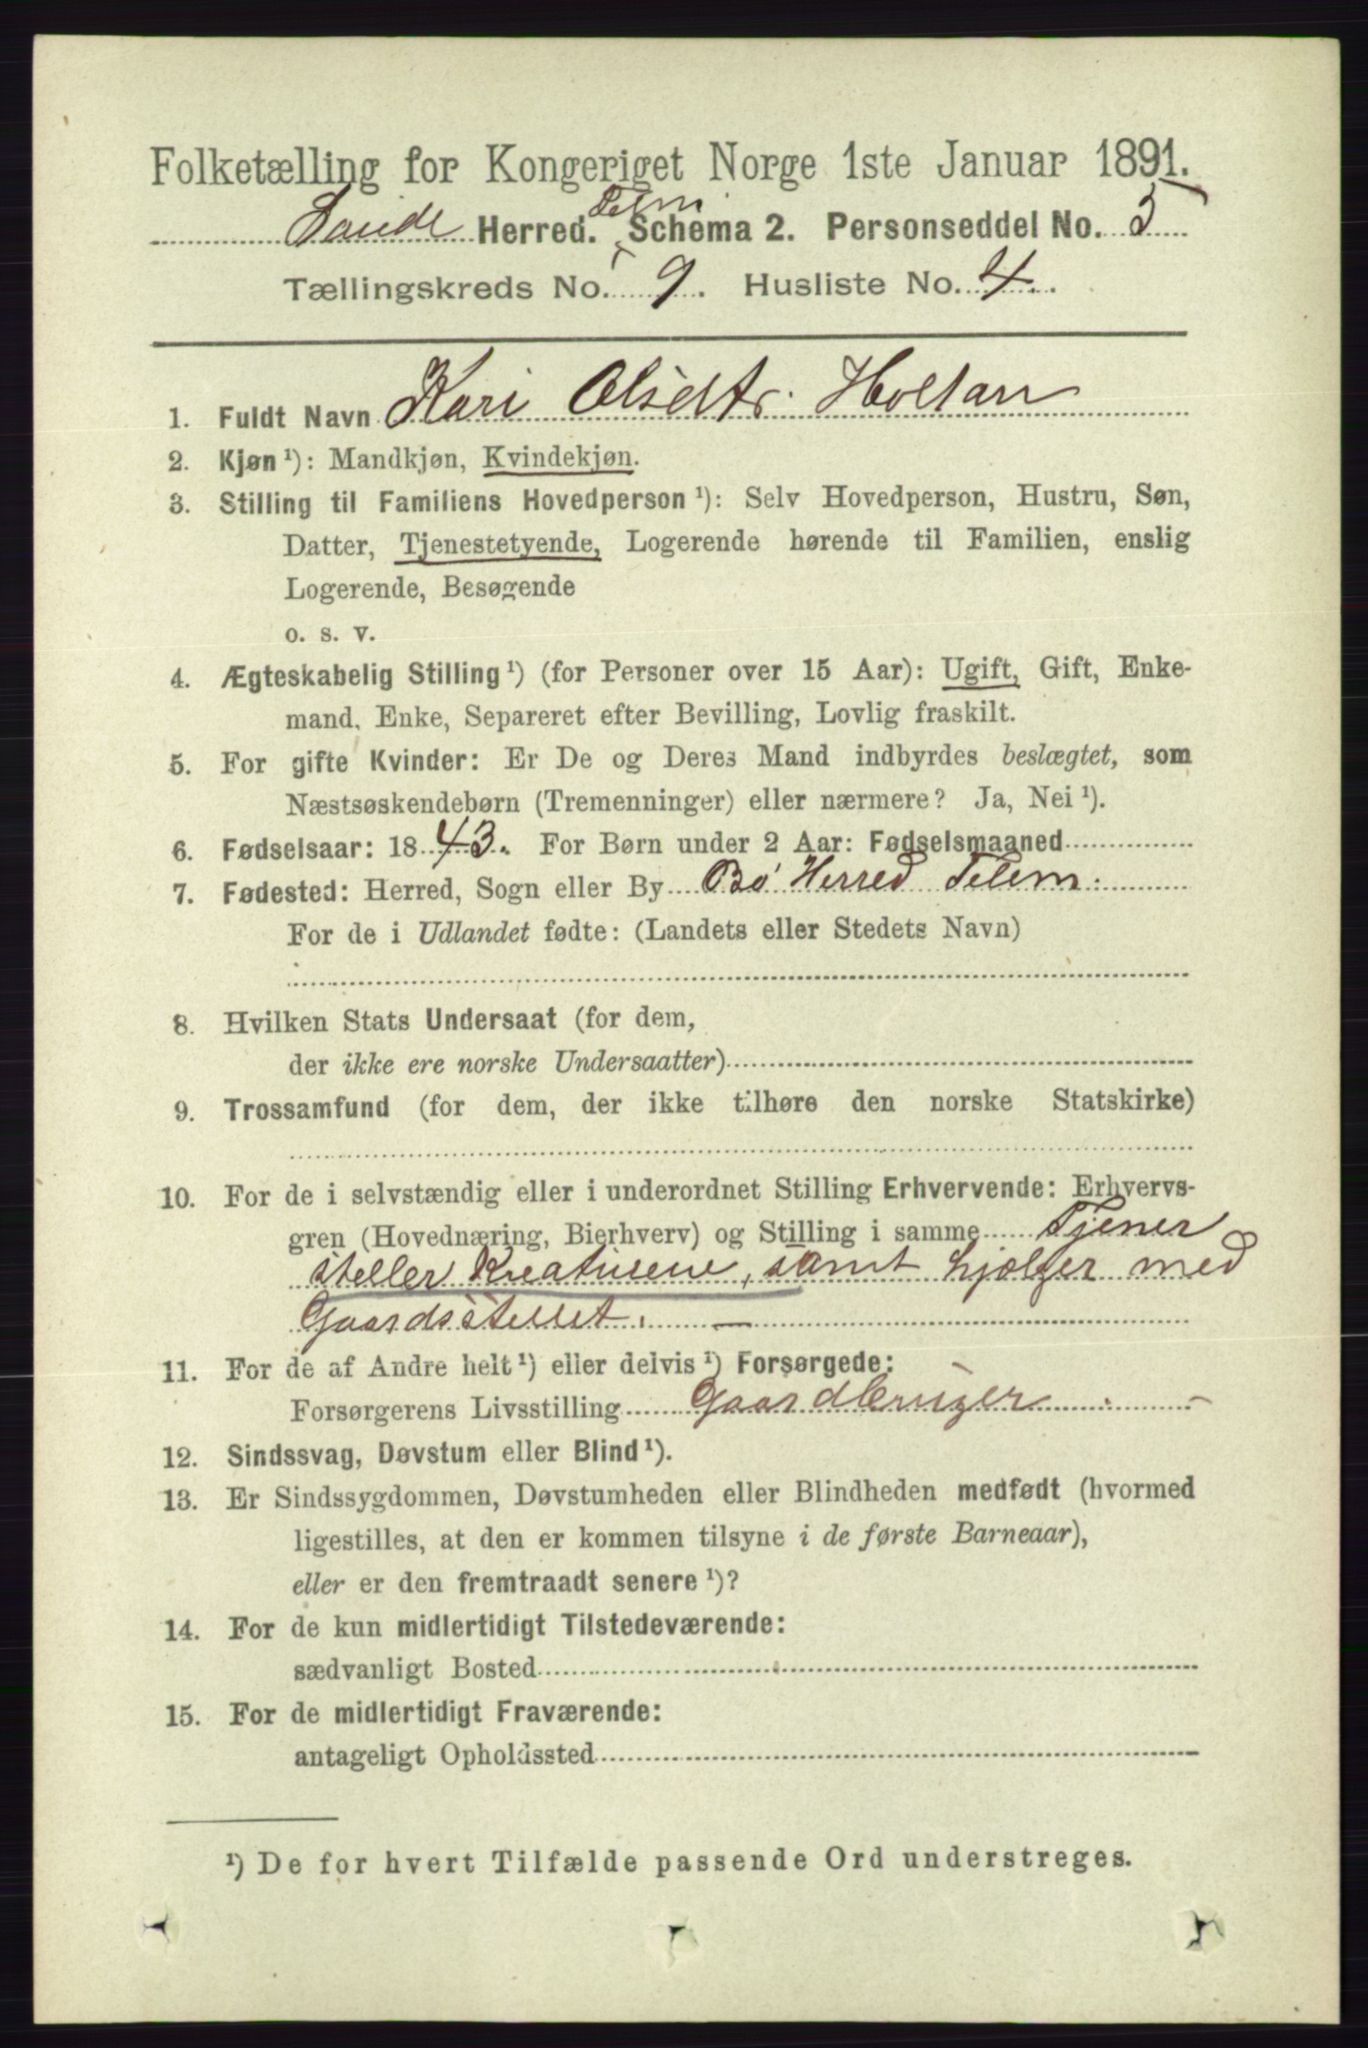 Folketælling for Kongeriget Norge 1ste Januar 1891.
Saude Herred. Telm. Schema 2. Personseddel No. 5
Tællingskreds No. 9. Husliste No. 4.
1. Fuldt Navn Kari Olsdtr. Holtan
2. Kjøn ¹): Mandkjøn, Kvindekjøn.
3. Stilling til Familiens Hovedperson ¹): Selv Hovedperson, Hustru, Søn,
Datter, Tjenestetyende, Logerende hørende til Familien, enslig
Logerende, Besøgende
o. s. v.
4. Ægteskabelig Stilling ¹) (for Personer over 15 Aar): Ugift, Gift, Enke-
mand, Enke, Separeret efter Bevilling, Lovlig fraskilt.
5. For gifte Kvinder: Er De og Deres Mand indbyrdes beslægtet, som
Næstsøskendebørn (Tremenninger) eller nærmere? Ja, Nei ¹).
6. Fødselsaar: 1843. For Børn under 2 Aar: Fødselsmaaned
7. Fødested: Herred, Sogn eller By Bø Herred Telem.
For de i Udlandet fødte: (Landets eller Stedets Navn)
8. Hvilken Stats Undersaat (for dem,
der ikke ere norske Undersaatter)
9. Trossamfund (for dem, der ikke tilhøre den norske Statskirke)
10. For de i selvstændig eller i underordnet Stilling Erhvervende: Erhvervs-
gren (Hovednæring, Bierhverv) og Stilling i samme Tjener
steller Kreaturene, samt hjælper med
Gaardsstellet. —
11. For de af Andre helt ¹) eller delvis ¹) Forsørgede:
Forsørgerens Livsstilling Gaardbruger. -
12. Sindssvag, Døvstum eller Blind ¹).
13. Er Sindssygdommen, Døvstumheden eller Blindheden medfødt (hvormed
ligestilles, at den er kommen tilsyne i de første Barneaar),
eller er den fremtraadt senere ¹)?
14. For de kun midlertidigt Tilstedeværende:
sædvanligt Bosted
15. For de midlertidigt Fraværende:
antageligt Opholdssted
¹) De for hvert Tilfælde passende Ord understreges.